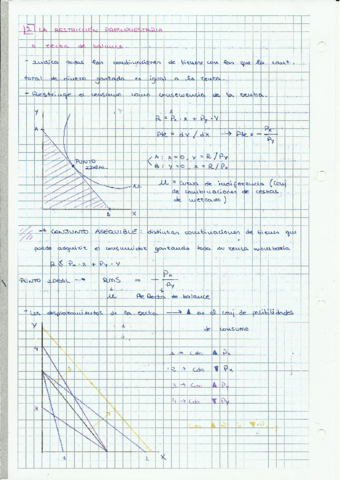 1 LA RESTRICCIÓN PRESUPUESTARIA
o recta de balance
- Indica todas las combinaciones de bienes con las que la cant.
total de dinero gastada es igual a la renta.
- Restringe el consumo como consecuencia de la renta.
Y
R = Px · x + Py · Y
A
Pte = dY / dx → Pte = - Px / Py
PUNTO IDEAL
A: x=0, Y = R/Py
B: Y=0, x = R/Px
U
U = curva de indiferencia (conj
de combinaciones de cestas
de mercado)
B
X
→ CONJUNTO ASEQUIBLE: distintas combinaciones de bienes que
puede adquirir el consumidor gastando toda su renta monetaria
R ≥ Px · x + Py · Y
PUNTO IDEAL → RMS = - Px / Py
U Pte Recta de balance
- Los desplazamientos de la recta → ▲ en el conj de posibilidades
de consumo
Y
4
1 → Cdo ▲ Px
2 → Cdo ▼ Px
3
3 → Cdo ▲ Py
4 → Cdo ▼ Py
1
2
X